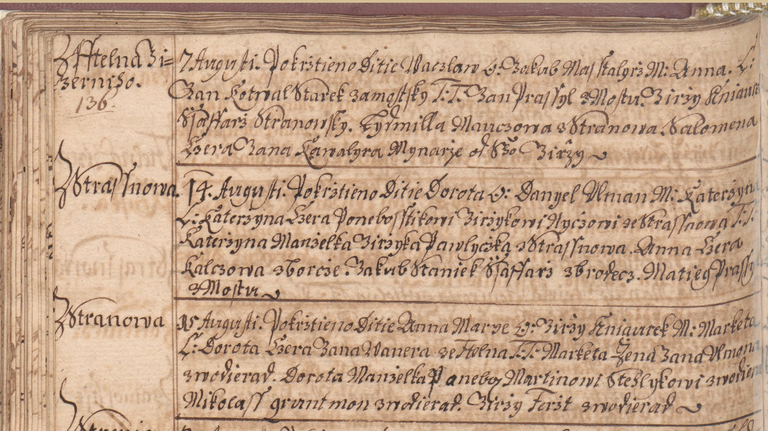 Z Htelna Zi-
zerniho.
136.
7 Augusti. Pokrztieno Ditie Waczlaw O: Jakub Masstalyrz M: Anna. L:
Jan Kotwal Starek zamostsky T.T. Jan Prassyl z Mostu. Jirzy Kniaurek
Ssaffarz Stranowsky. Lydmilla Mauczowa z Stranowa. Salomena
Czera Jana Kawalyra Mynarze od Sº Jirzy
Z Strassnowa.
14. Augusti. Pokrztieno Ditie Dorota O: Danyel Ulman M: Katerzyna
L: Katerzyna Czera Jirzykowi ze Strassnowa T.T.
Katerzyna Manzelka Jirzyka Pawlyczka z Strassnowa. Anna Czera
Kalczowa z Borcze. Jakub Staniek Ssaffarz z Brodecz. Matieg Prassyl
z Mostu
Z Stranowa
15 Augusti. Pokrztieno Ditie Anna Marye O: Jirzy Kniaurek M: Marketa
L: Dorota Czera Jana Wanera ze Htelna T.T. Marketa Zena Jana
z wodierad. Dorota Manzelka Martinowi Steslykowi z wodierad
Mikolass z wodierad. Jirzy Ferzt z wodierad